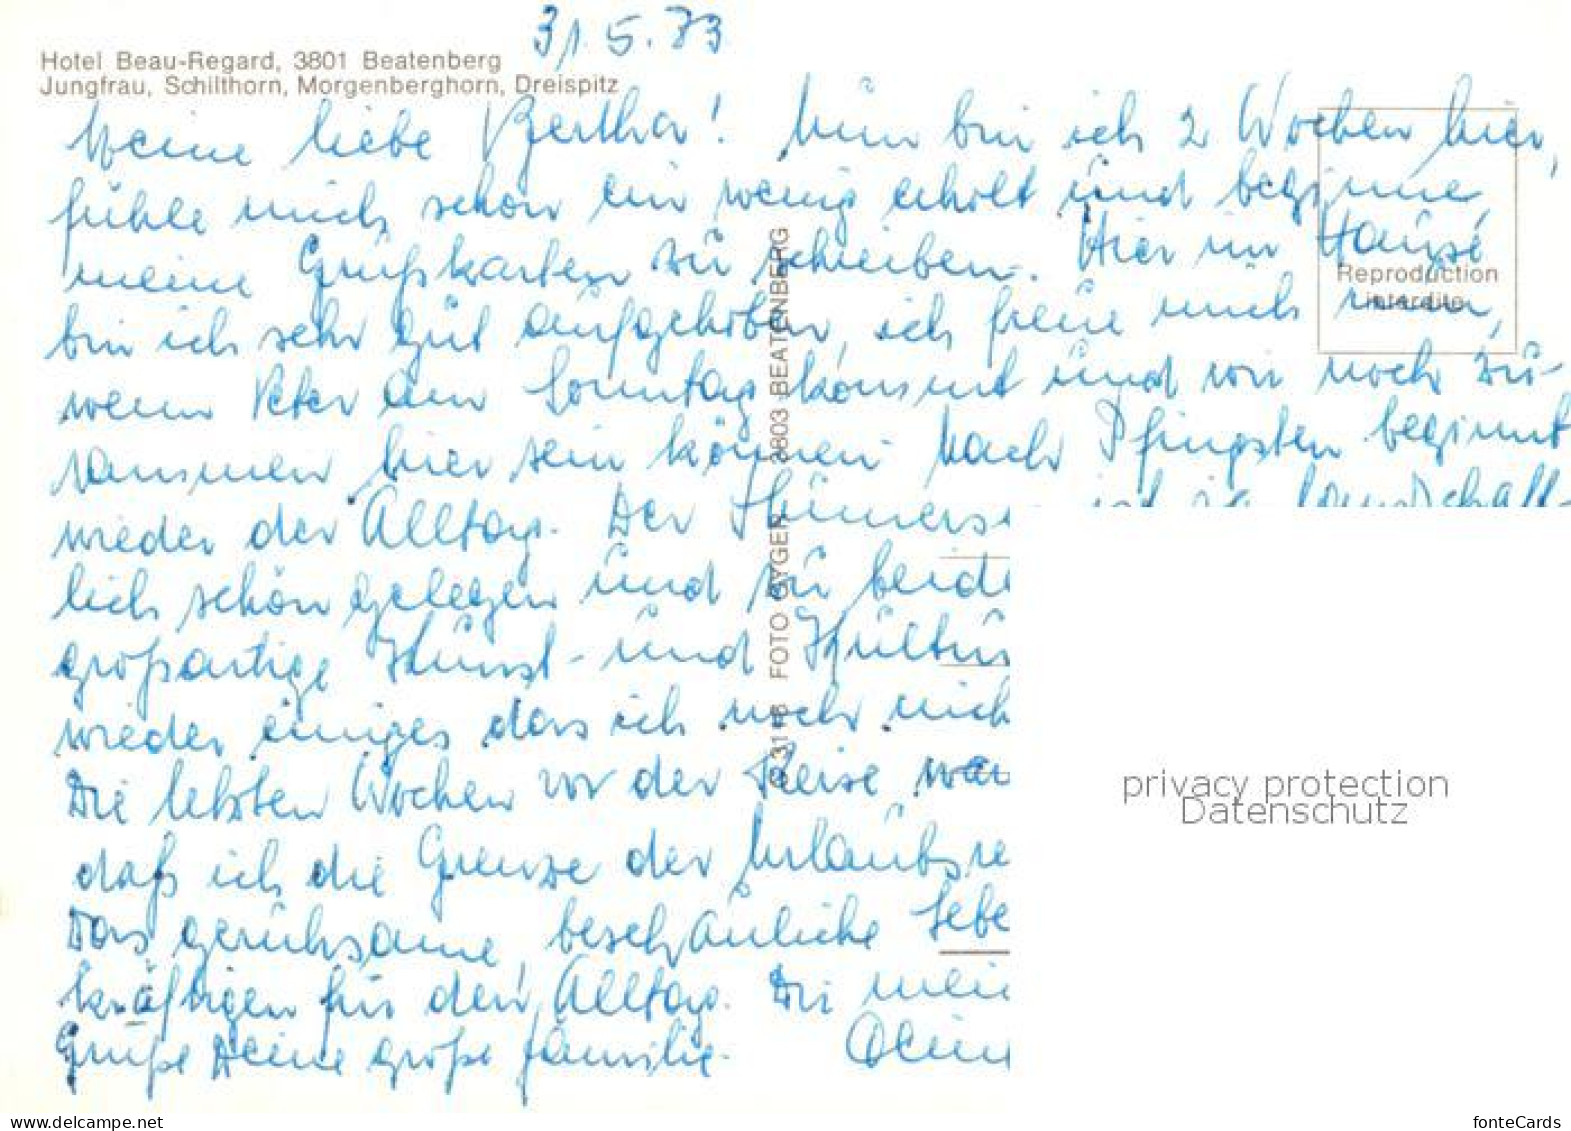 31.5.83
Hotel Beau-Regard, 3801 Beatenberg
Jungfrau, Schilthorn, Morgenberghorn, Dreispitz
Meine liebe Bertha! Nun bin ich 2 Wochen hier,
fühle mich schon ein wenig erholt und beginne
meine Grußkarten zu schreiben. Hier im Hause
Reproduction
interdite
bin ich sehr gut aufgehoben, ich freue mich nun,
wenn Peter am Sonntag kommt und wir noch zu-
sammen hier sein können. Nach Pfingsten beginnt
wieder der Alltag. Der ist ja landschaft-
lich schön gelegen und zu beide
großartige Kunst- und Kultur
wieder einiges das ich noch nich
Die letzten Wochen vor der Reise war
daß ich die Grenze der Urlaubsre
Das geruhsame, beschauliche Lebe
kräftigen für den Alltag. Dir mein
Grüße Deine große Familie. Deine
3116 FOTO GYGER 3803 BEATENBERG
privacy protection
Datenschutz
www.delcampe.net
fonteCards